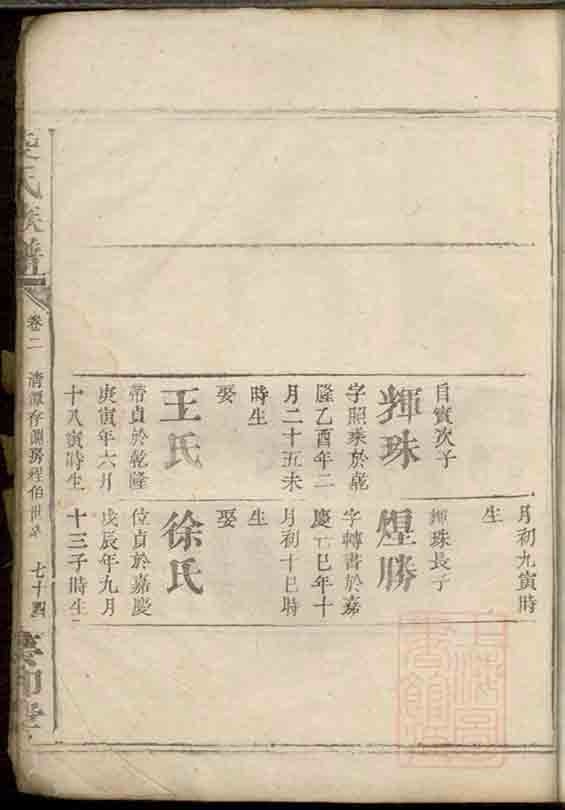 月初九寅時
生
自實次子
輝珠
字照乘於乾
隆乙酉年二
月二十五未
時生
娶
王氏
帶貞於乾隆
庚寅年六月
十八寅時生
輝珠長子
煌勝
字轉書於嘉
慶己巳年十
月初十巳時
生
娶
徐氏
位貞於嘉慶
戊辰年九月
十三子時生
氏族譜
卷二
清潭存淵房程伯世系
七十四
上海圖書館藏